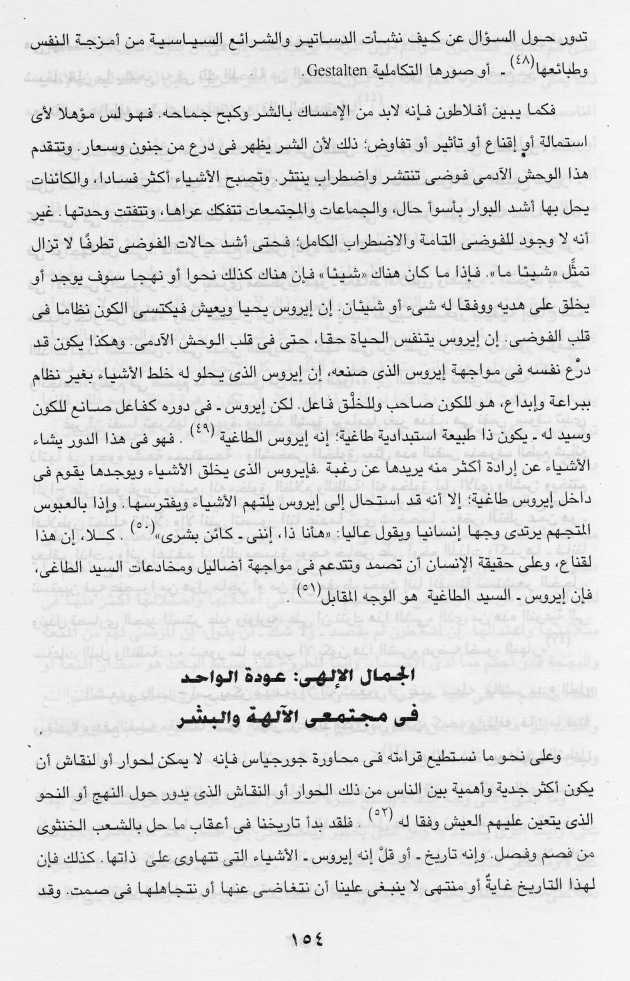 تدور حول السؤال عن كيف نشأت الدساتير والشرائع السياسية من أمزجة النفس
وطبائعها(٤٨) ـ أو صورها التكاملية Gestalten.
فكما يبين أفلاطون فإنه لابد من الإمساك بالشر وكبح جماحه. فهو لس مؤهلا لأى
استمالة أو إقناع أو تأثير أو تفاوض؛ ذلك لأن الشر يظهر فى درع من جنون وسعار. وتتقدم
هذا الوحش الآدمى فوضى تنتشر واضطراب ينتثر. وتصبح الأشياء أكثر فسادا، والكائنات
يحل بها أشد البوار بأسوأ حال، والجماعات والمجتمعات تتفكك عراها، وتتفتت وحدتها. غير
أنه لا وجود للفوضى التامة والاضطراب الكامل؛ فحتى أشد حالات الفوضى تطرفًا لا تزال
تمثِّل «شيئا ما». فإذا ما كان هناك «شيئا» فإن هناك كذلك نحوا أو نهجا سوف يوجد أو
يخلق على هديه ووفقا له شىء أو شيئان. إن إيروس يحيا ويعيش فيكتسى الكون نظاما فى
قلب الفوضى. إن إيروس يتنفس الحياة حقا، حتى فى قلب الوحش الآدمى. وهكذا يكون قد
درَّع نفسه فى مواجهة إيروس الذى صنعه، إن إيروس الذى يحلو له خلط الأشياء بغير نظام
ببراعة وإبداع، هو للكون صاحب وللخلْق فاعل. لكن إيروس ـ فى دوره كفاعل صانع للكون
وسيد له ـ يكون ذا طبيعة استبدادية طاغية؛ إنه إيروس الطاغية (٤٩) . فهو فى هذا الدور يشاء
الأشياء عن إرادة أكثر منه يريدها عن رغبة .فإيروس الذى يخلق الأشياء ويوجدها يقوم فى
داخل إيروس طاغية؛ إلا أنه قد استحال إلى إيروس يلتهم الأشياء ويفترسها. وإذا بالعبوس
المتجهم يرتدى وجها إنسانيا ويقول عاليا: «هـأنا ذا، إننى ـ كائن بشرى»(٥٠) . كـلا، إن هذا
لقناع، وعلى حقيقة الإنسان أن تصمد وتتدعم فى مواجهة أضاليل ومخادعات السيد الطاغى،
فإن إيروس ـ السيد الطاغية هو الوجه المقابل(٥١) .
الجمال الإلهى: عودة الواحد
فى مجتمعى الآلهة والبشر
وعلى نحو ما نستطيع قراءته فى محاورة جورجياس فإنه لا يمكن لحوار أو لنقاش أن
يكون أكثر جدية وأهمية بين الناس من ذلك الحوار أو النقاش الذى يدور حول النهج أو النحو
الذى يتعين عليهم العيش وفقا له (٥٢) . فلقد بدأ تاريخنا فى أعقاب ما حل بالشعب الخنثوى
من فصم وفصل. وإنه تاريخ ـ أو قلْ إنه إيروس ـ الأشياء التى تتهاوى على ذاتها. كذلك فإن
لهذا التاريخ غايةٌ أو منتهى لا ينبغى علينا أن نتغاضى عنها أو نتجاهلها فى صمت. وقد
١٥٤